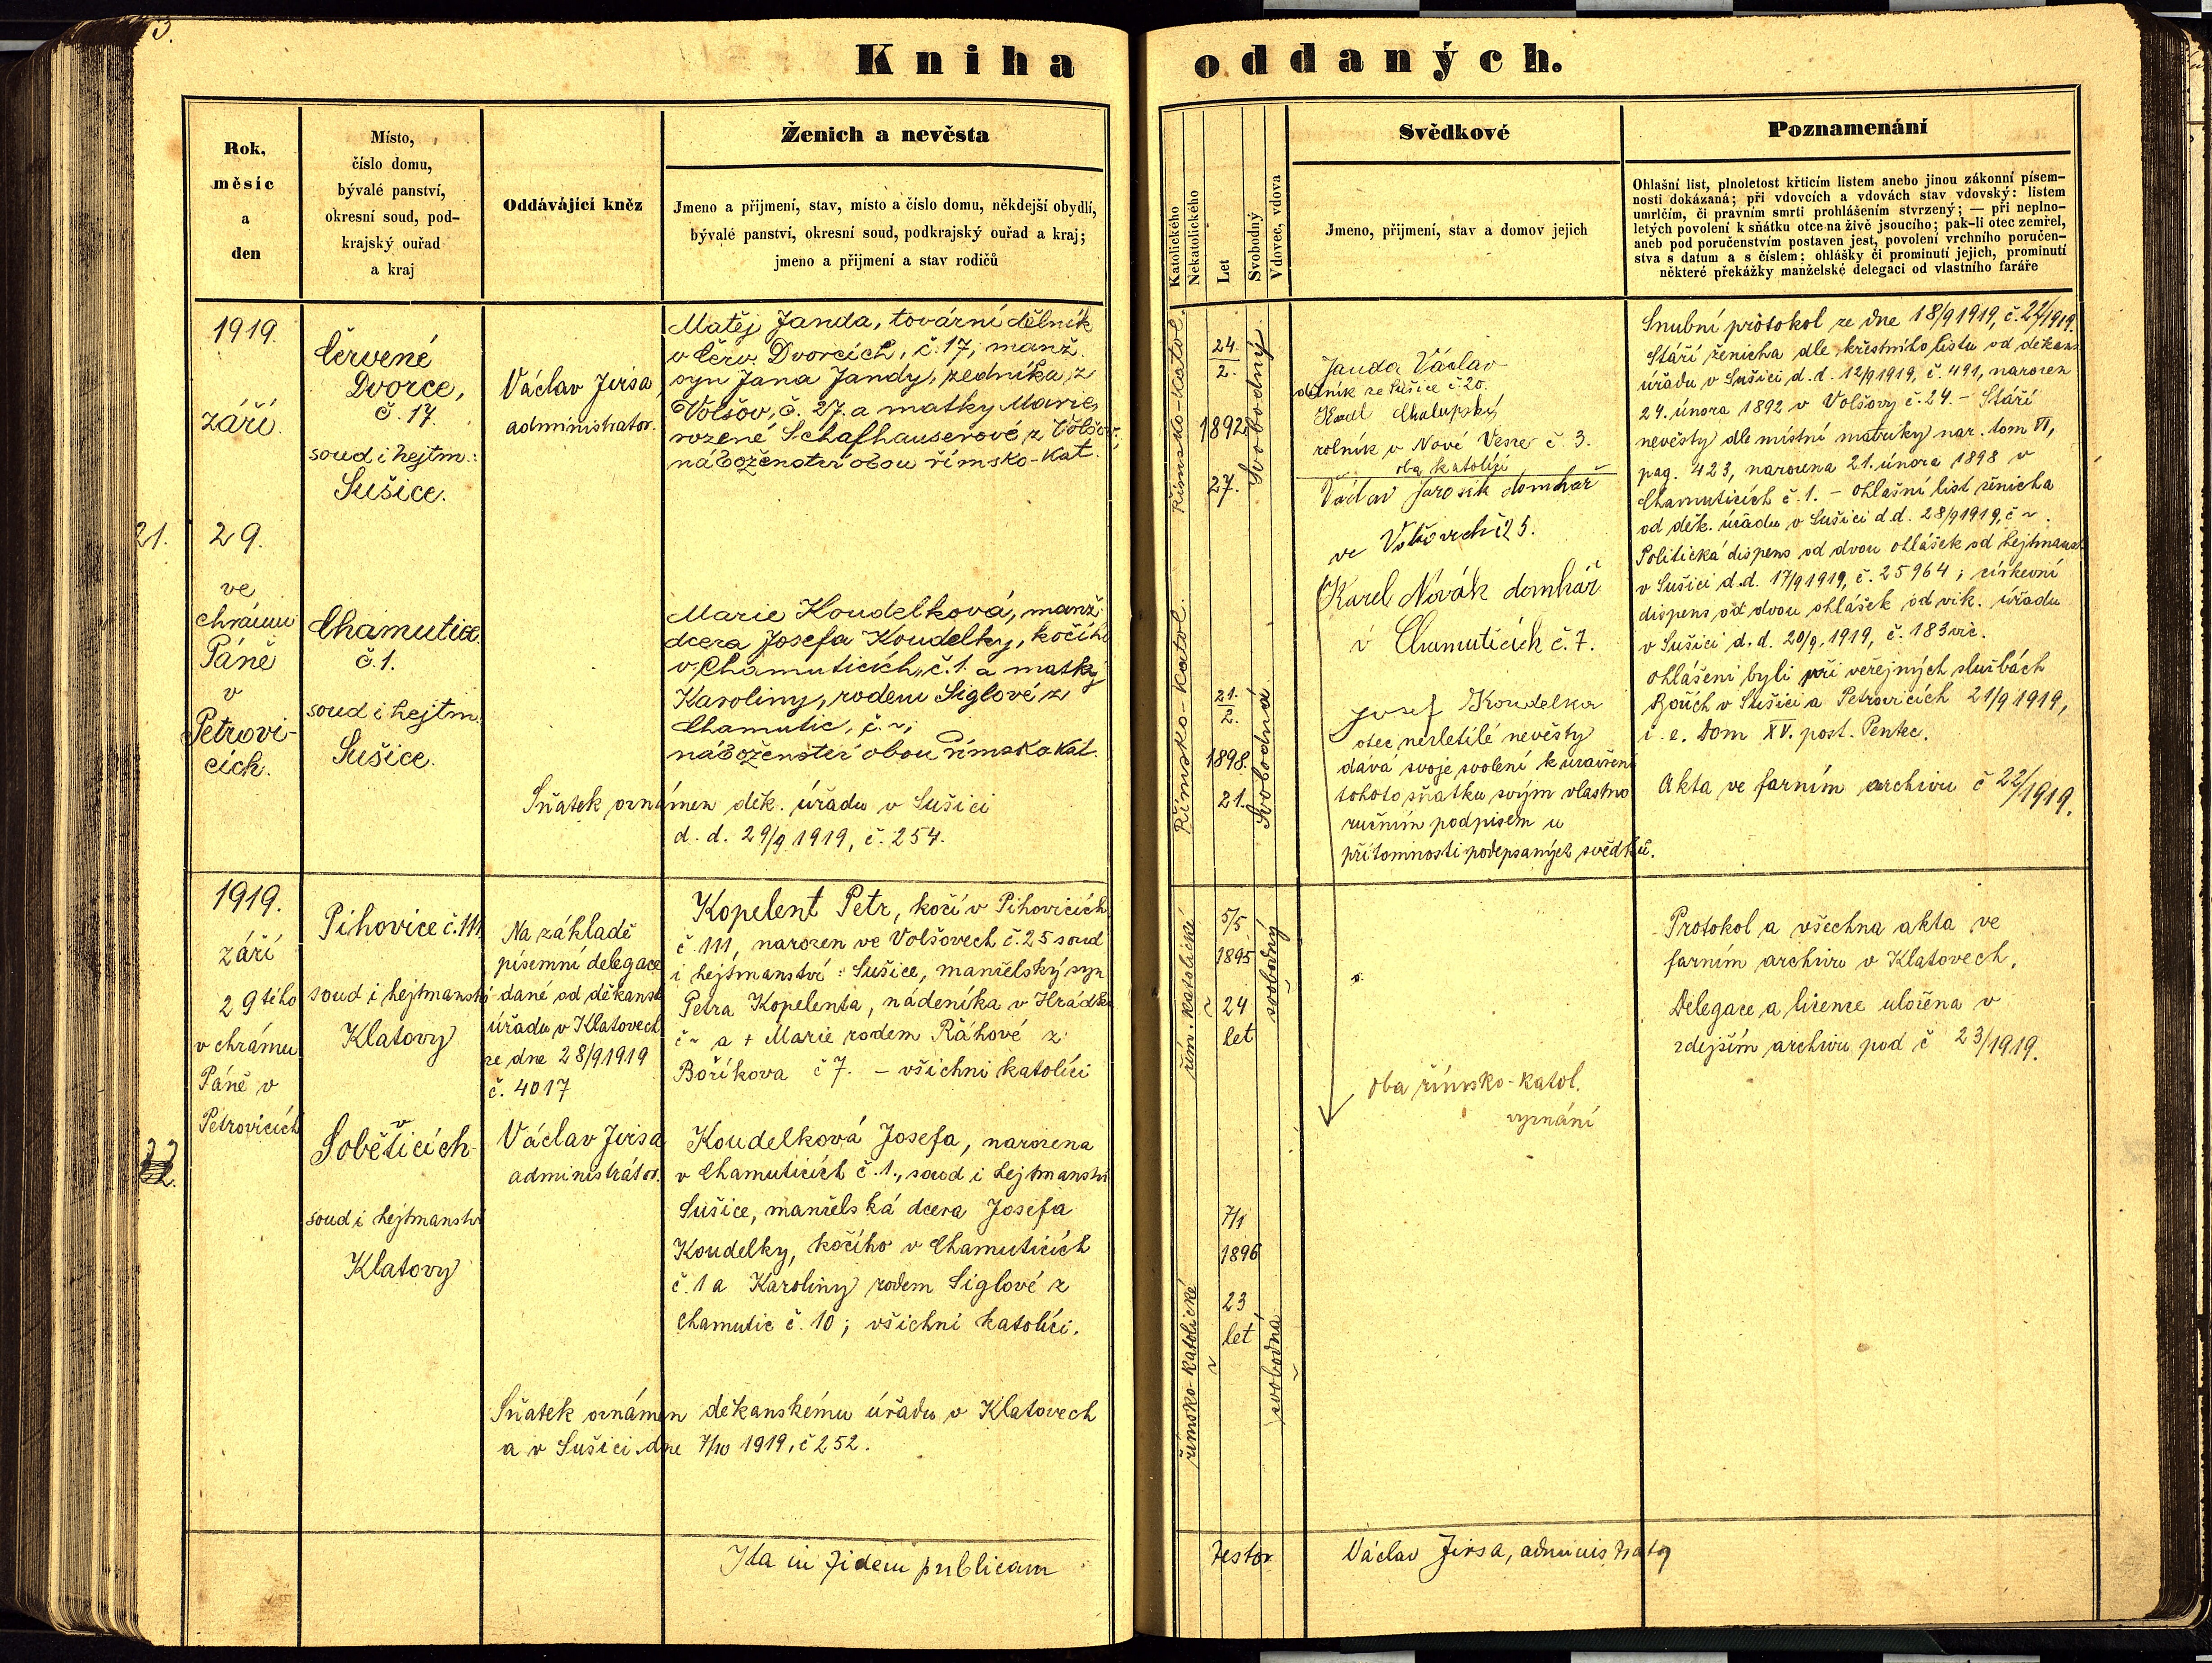 3.
Kniha oddaných.
Rok,
měsíc
a
den
Místo,
číslo domu,
bývalé panství,
okresní soud, pod-
krajský ouřad
a kraj
Oddávající kněz
Ženich a nevěsta
Jmeno a přijmení, stav, místo a číslo domu, někdejší obydlí,
bývalé panství, okresní soud, podkrajský ouřad a kraj;
jmeno a přijmení a stav rodičů
Katolického
Nekatolického
Let
Svobodný
Vdovec, vdova
Svědkové
Jmeno, přijmení, stav a domov jejich
Poznamenání
Ohlašní list, plnoletost křticím listem anebo jinou zákonní písem-
nosti dokázaná; při vdovcích a vdovách stav vdovský: listem
umrlčím, či pravním smrti prohlášením stvrzený; — při neplno-
letých povolení k sňátku otce na živě jsoucího; pak-li otec zemřel,
aneb pod poručenstvím postaven jest, povolení vrchního poručen-
stva s datum a s číslem; ohlášky či prominutí jejich, prominutí
některé překážky manželské delegaci od vlastního faráře
21.
1919.
září.
29.
ve
chrámu
Páně
v
Petrovi-
cích.
Červené
Dvorce,
č. 17.
soud i hejtm.:
Sušice.
Chamutice
č. 1.
soud i hejtm.
Sušice.
Václav Jirsa
administrator.
Matěj Janda, tovární dělník
v Červ. Dvorcích, č. 17, manž.
syn Jana Jandy, zedníka z
Volšov, č. 27. a matky Marie,
rozené Schafhauserové z Volšov,
náboženství obou římsko-kat.
Marie Koudelková, manž.
dcera Josefa Koudelky, kočího
v Chamuticích, č. 1. a matky
Karoliny, rodem Siglové z
Chamutic, č. ~,
náboženství obou římsko kat.
Sňatek oznámen děk. úřadu v Sušici
d. d. 29/9 1919, č. 254.
Římsko-katol.
24.
2.
1892
27.
Svobodný
Římsko-katol.
21.
2.
1898.
21.
Svobodná
Janda Václav
dělník ze Sušice č. 20.
Karel Chalupský,
rolník v Nové Vsi č. 3.
oba katolíci
Václav Jarošík domkář
ve Volšovech č 25.
Karel Novák domkář
v Chamuticích č. 7.
Josef Koudelka
otec nezletilé nevěsty
dává svoje svolení k uzavření
tohoto sňatku svým vlastno
ručním podpisem u
přítomnosti podepsaných svědků.
Snubní protokol ze dne 18/9 1919, č. 22/1919.
Stáří ženicha dle křestního listu od děkan.
úřadu v Sušici d. d. 12/9 1919, č. 491, narozen
24. února 1892 v Volšovy č. 24. - Stáří
nevěsty dle místní matriky nar. tom VI,
pag. 423, narozena 21. února 1898 v
Chamuticích č. 1. - Ohlašní list ženicha
od děk. úřadu v Sušici d. d. 28/9 1919, č ~.
Politická dispens od dvou ohlášek od hejtmanst.
v Sušici d. d. 17/9 1919, č. 25964; církevní
dispens od dvou ohlášek od vik. úřadu
v Sušici d. d. 20/9, 1919, č. 183 vic.
Ohlášeni byli při veřejných službách
Božích v Sušici a Petrovicích 21/9 1919,
i. e. Dom XV. post. Pentec.
Akta ve farním archivu č 22/1919.
22.
1919.
září
29tého
v chrámu
Páně v
Petrovicích
Pihovice č. 111
soud i hejtmanství
Klatovy
v
Soběticích
soud i hejtmanství
Klatovy
Na základě
písemní delegace
dané od děkansk.
úřadu v Klatovech
ze dne 28/9 1919
č. 4017
Václav Jirsa
administrátor.
Kopelent Petr, kočí v Pihovicích
č. 111, narozen ve Volšovech č. 25 soud
i hejtmanství: Sušice, manželský syn
Petra Kopelenta, nádeníka v Hrádku
č ~ a + Marie rodem Ráhové z
Boříkova č 7. - všichni katolíci
Koudelková Josefa, narozena
v Chamuticích č. 1., soud i hejtmanství
Sušice, manželská dcera Josefa
Koudelky, kočího v Chamuticích
č. 1 a Karoliny rodem Siglové z
Chamutic č. 10; všichni katolíci.
Sňatek oznámen děkanskému úřadu v Klatovech
a v Sušici dne 7/10 1919, č 252.
řím. katolické
5/5
1895
24
let
svobodný
římsko-katolické
7/1
1896
23
let
svobodná
oba římsko-katol.
vyznání
Protokol a všechna akta ve
farním archivu v Klatovech.
Delegace a license uložena v
zdejším archivu pod č 23/1919.
Ita in fidem publicam
testor
Václav Jirsa, administrator